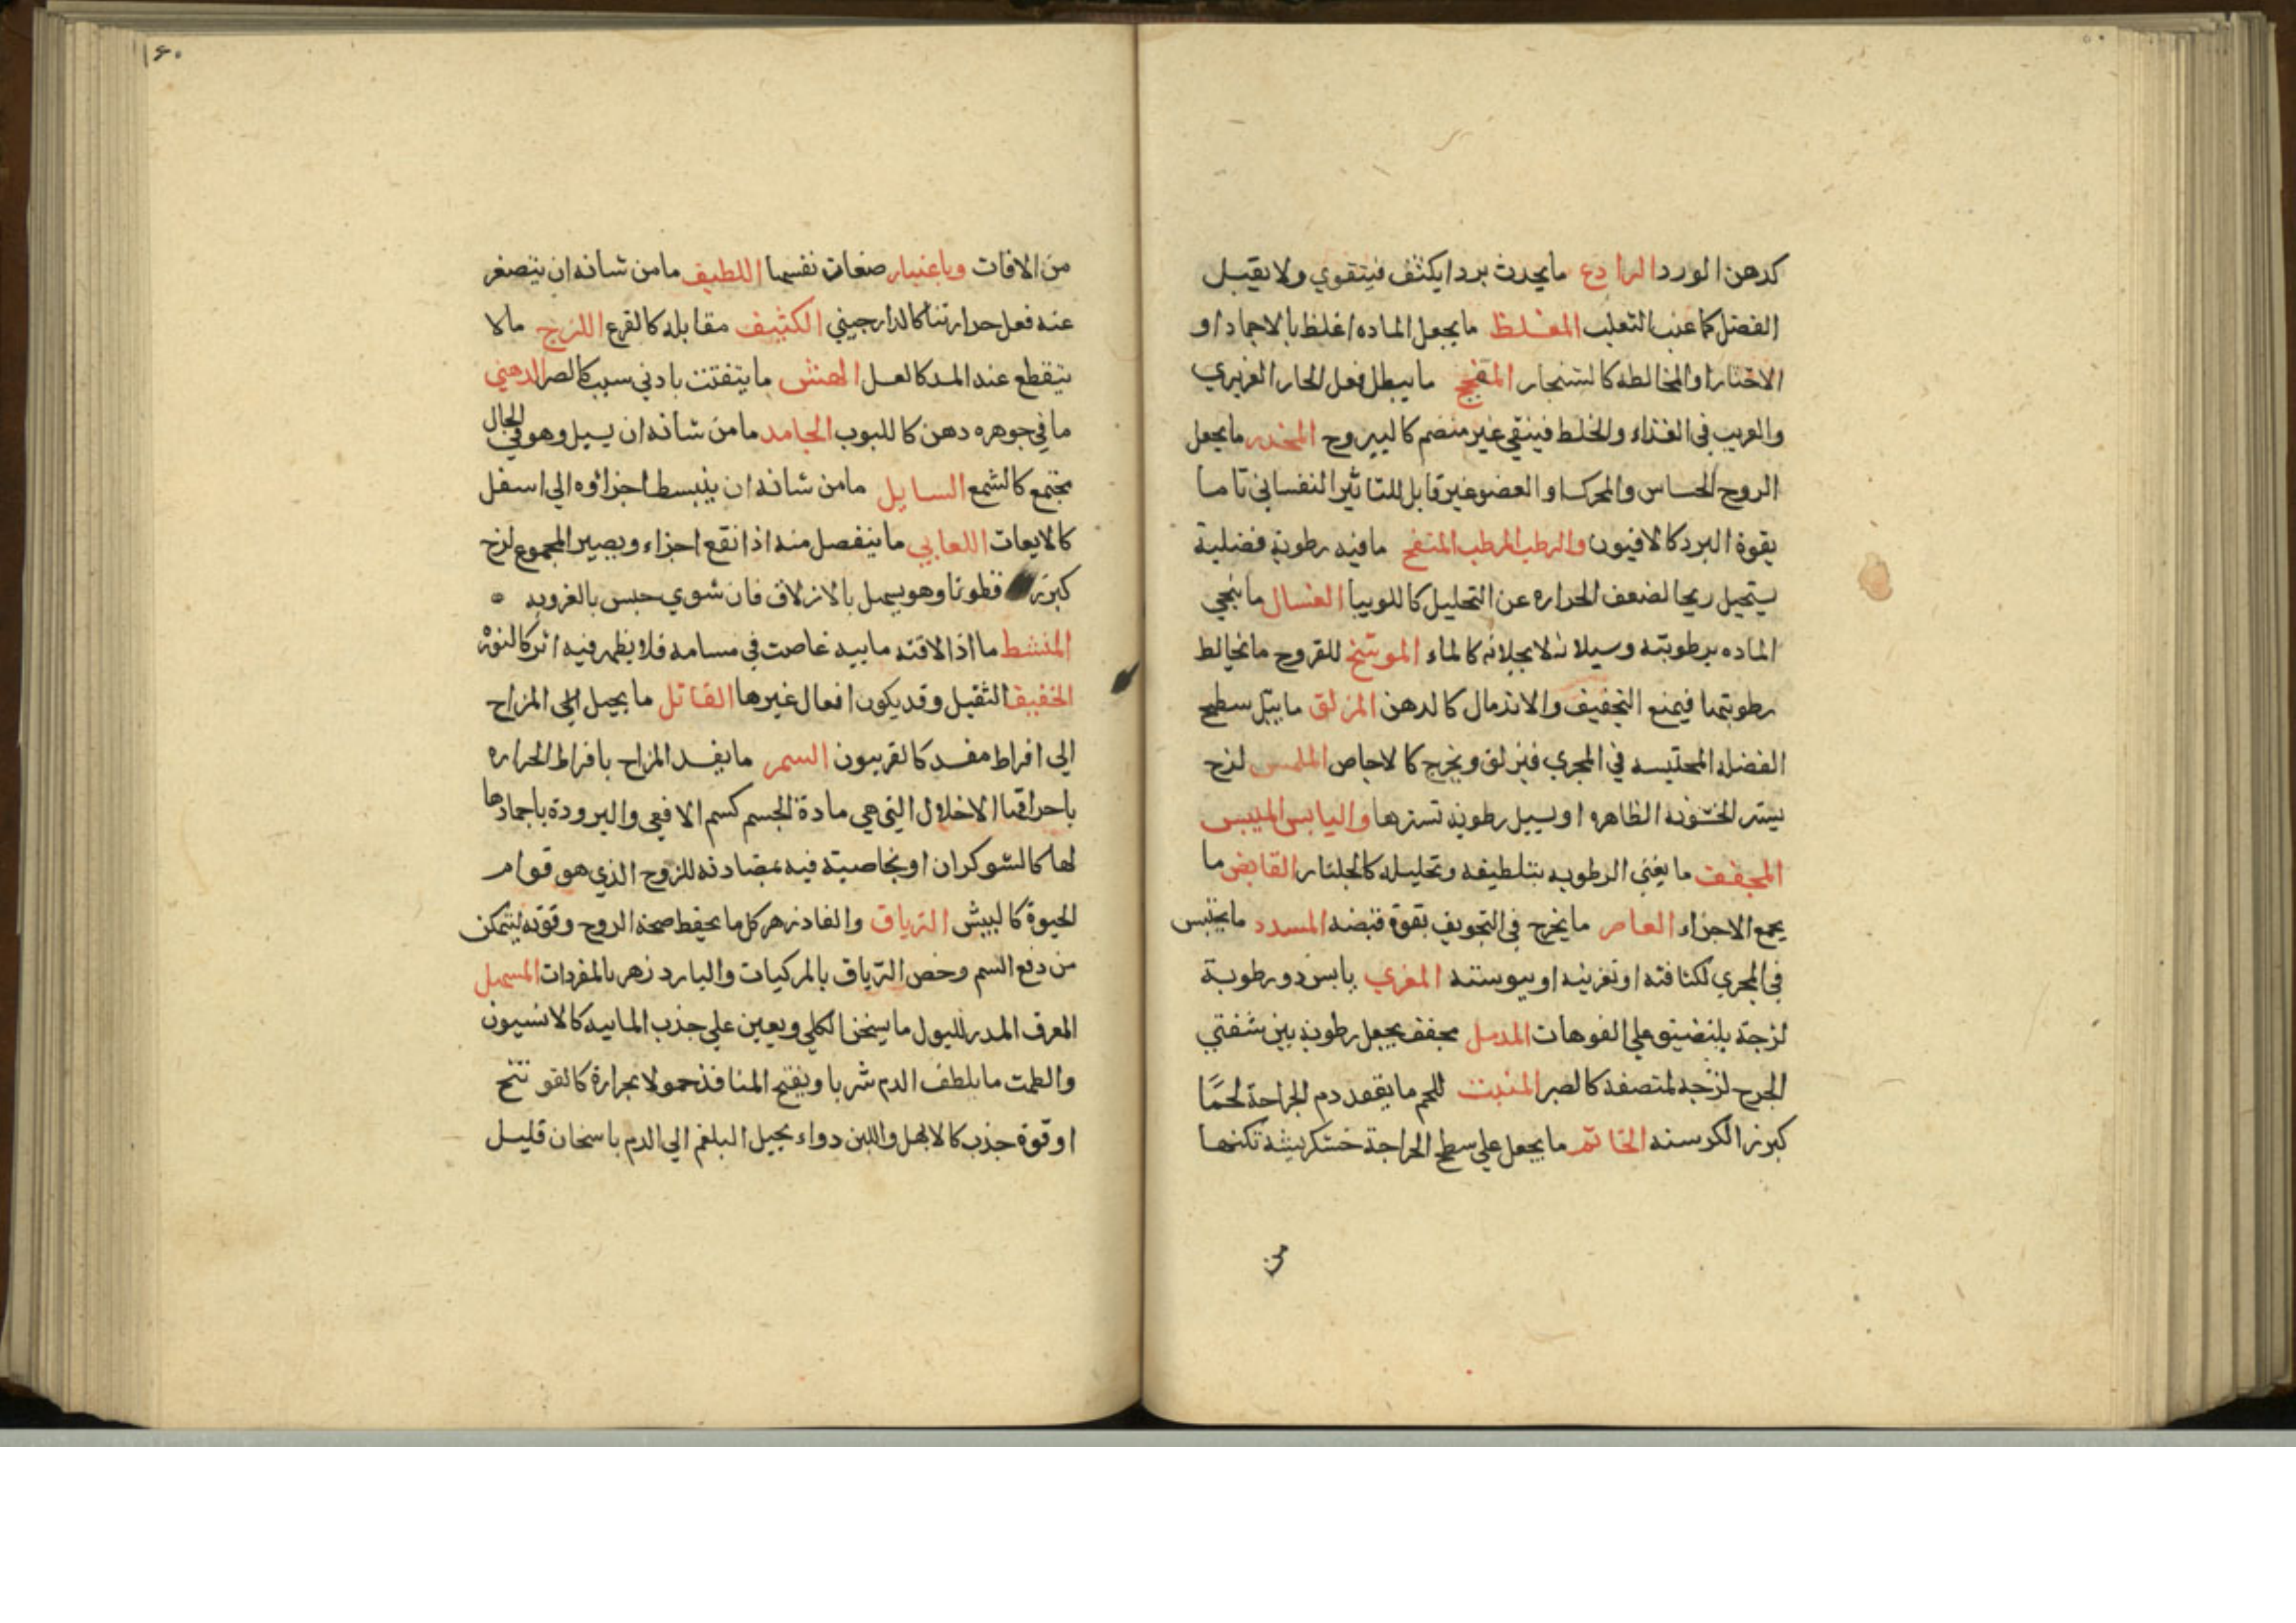 كدهن الورد الرادع ما يحدث بردا يكثف فيتقوي ولا يقبل
الفضل كما عنب الثعلب المغلظ ما يجعل الماده اغلظ بالاجماد او
الاخثار او المخالطه كالشنجار المفجج ما يبطل فعل الحار الغريزي
والغريب في الغذاء والخلط فينقي غير منضم كاليبروح المخدر ما يجعل
الروح الحساس والمحرك او العضو غير قابل للتاثير النفساني تاما
بقوة البرد كالافيون والرطب المرطب المنفخ ما فيه رطوبة فضلية
يستحيل ريحا لضعف الحراره عن التحليل كاللوبيا الغسال ما ينجي
الماده برطوبته وسيلانه لا بجلائه كالماء الموسخ للقروح ما يخالط
رطوبتها فيمنع التجفيف والاندمال كالدهن المزلق ما يبل سطح
الفضله المحتبسه في المجري فيزلق ويخرج كالاجاص الملمس لزج
يستر الخشونه الظاهره او يسيل رطوبة تسترها واليابس الميبس
المجفف ما يفني الرطوبه بتلطيفه وتحليله كالجلنار القابض ما
يجمع الاجزاء العاصر ما يخرج في التجويف بقوة قبضه المسدد ما يحتبس
في المجري لكثافته او تغريته او يبوسته المغري يابس ذو رطوبة
لزجة يلتضيق علي الفوهات المدمل مجفف يجعل رطوبة بين شفتي
الجرح لزجه لمتصقه كالصبر المنبت للحم ما يعقد دم الجراحة لحما
كبزر الكرسنه الخاتم ما يجعل علي سطح الجراحة خشكريشه تكنها
من
۶۰
من الافات وباعتبار صفات نفسها اللطيف ما من شانه ان يتصغر
عنه فعل حرارتنا كالدارجيني الكثيف مقابله كالقرع اللزج ما لا
يتقطع عند المد كالعسل الهش ما يتفتت بادني سبب كالصبر الدهني
ما في جوهره دهن كاللبوب الجامد ما من شانه ان يسيل وهو في الحال
مجتمع كالشمع السايل ما من شانه ان ينبسط اجزاؤه الي اسفل
كالايعات اللعابي ما ينفصل منه اذا نقع اجزاء ويصير المجموع لزج
كبزر قطونا وهو يسهل بالازلاق فان شوي حبس بالغرويه
المنشط ما اذا لاقته مابيه غاصت في مسامه فلا يظهر فيه اثر كالنورة
الخفيف الثقيل وقد يكون افعال غيرها القاتل ما يحيل الي المزاج
الي افراط مفسد كالفربيون السمر ما يفسد المزاج بافراط الحراره
باحراقها الاخلال التي هي مادة الجسم كسم الافعي والبرودة باجمادها
لها كالشوكران او بخاصية فيه بمضادته للروح الذي هو قوام
الحيوة كالبيش الترياق والفادزهر كل ما يحفظ صحة الروح وقوته ليتمكن
من دفع السم وخص الترياق بالمركبات والباردزهر بالمفردات المسهل
المعرق المدر للبول ما يسخن الكلي ويعين علي جذب المابيه كالانسيون
والطمث ما يلطف الدم شربا ويفتح المنافذ حمولا بحرارة كالقو
او قوة جذب كالابهل واللبن دواء يحيل البلغم الي الدم باسخان قليل